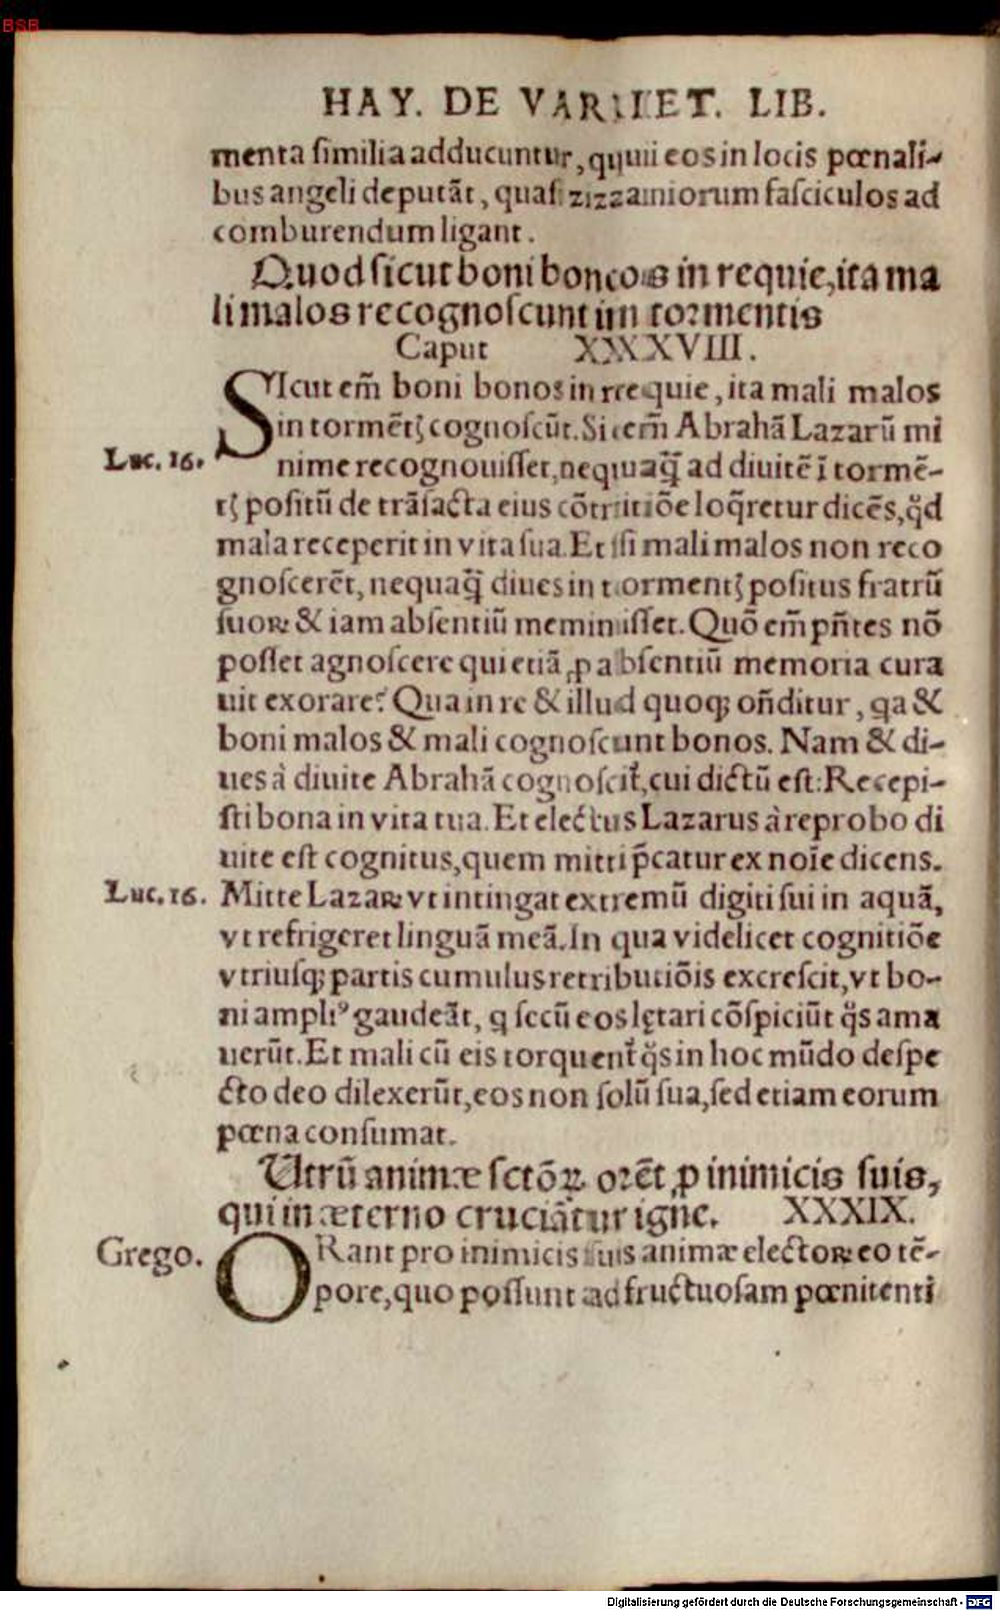 BSB
HAY. DE VARIIET. LIB.
menta similia adducuntur, quui eos in locis pœnali-
bus angeli deputāt, quasi zizzaniorum fasciculos ad
comburendum ligant.
Quod sicut boni bonos in requie, ita ma
li malos recognoscunt in tormentis
Caput XXXXVIII.
SIcut em̄ boni bonos in requie, ita mali malos
in tormētꝭ cognoscūt. Si em̄ Abrahā Lazarū mi
Luc. 16.
nime recognouisset, nequaq̃ ad diuitē ī tormē-
tꝭ positū de trāsacta eius cōtritiōe loq̃retur dicēs, q̈d
mala receperit in vita sua. Et si mali malos non reco
gnoscerēt, nequaq̃ diues in tormentꝭ positus fratrū
suoꝝ & iam absentiū meminisset. Quō em̄ pñtes nō
posset agnoscere qui etiā ꝓ absentiū memoria cura
uit exorare? Qua in re & illud quoqꝫ oñditur, qa &
boni malos & mali cognoscunt bonos. Nam & di-
ues à diuite Abrahā cognoscit̃, cui dictū est: Recepi-
sti bona in vita tua. Et electus Lazarus à reprobo di
uite est cognitus, quem mitti p̄catur ex noīe dicens.
Luc. 16.
Mitte Lazaꝝ vt intingat extremū digiti sui in aquā,
vt refrigeret linguā meā. In qua videlicet cognitiōe
vtriusqꝫ partis cumulus retributiōis excrescit, vt bo-
ni ampliꝰ gaudeāt, q secū eos lętari cōspiciūt q̈s ama
uerūt. Et mali cū eis torquent̃ q̈s in hoc mūdo despe
cto deo dilexerūt, eos non solū sua, sed etiam eorum
pœna consumat.
Utrū animæ sctōꝝ orēt ꝓ inimicis suis,
qui in æterno cruciātur igne. XXXIX.
Grego.
ORant pro inimicis suis animæ electoꝝ eo tē-
pore, quo possunt ad fructuosam pœnitenti
Digitalisierung gefördert durch die Deutsche Forschungsgemeinschaft - DFG